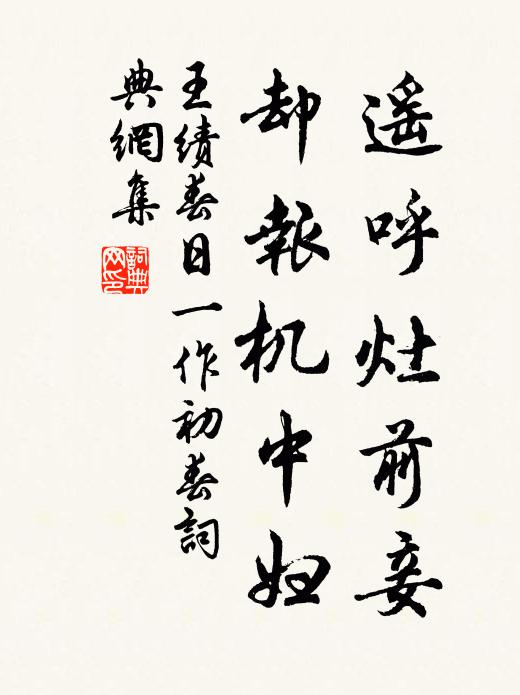 遥呼灶前妾
却報机中妇
王績春日一作初春詞
典網集
詞典
网印